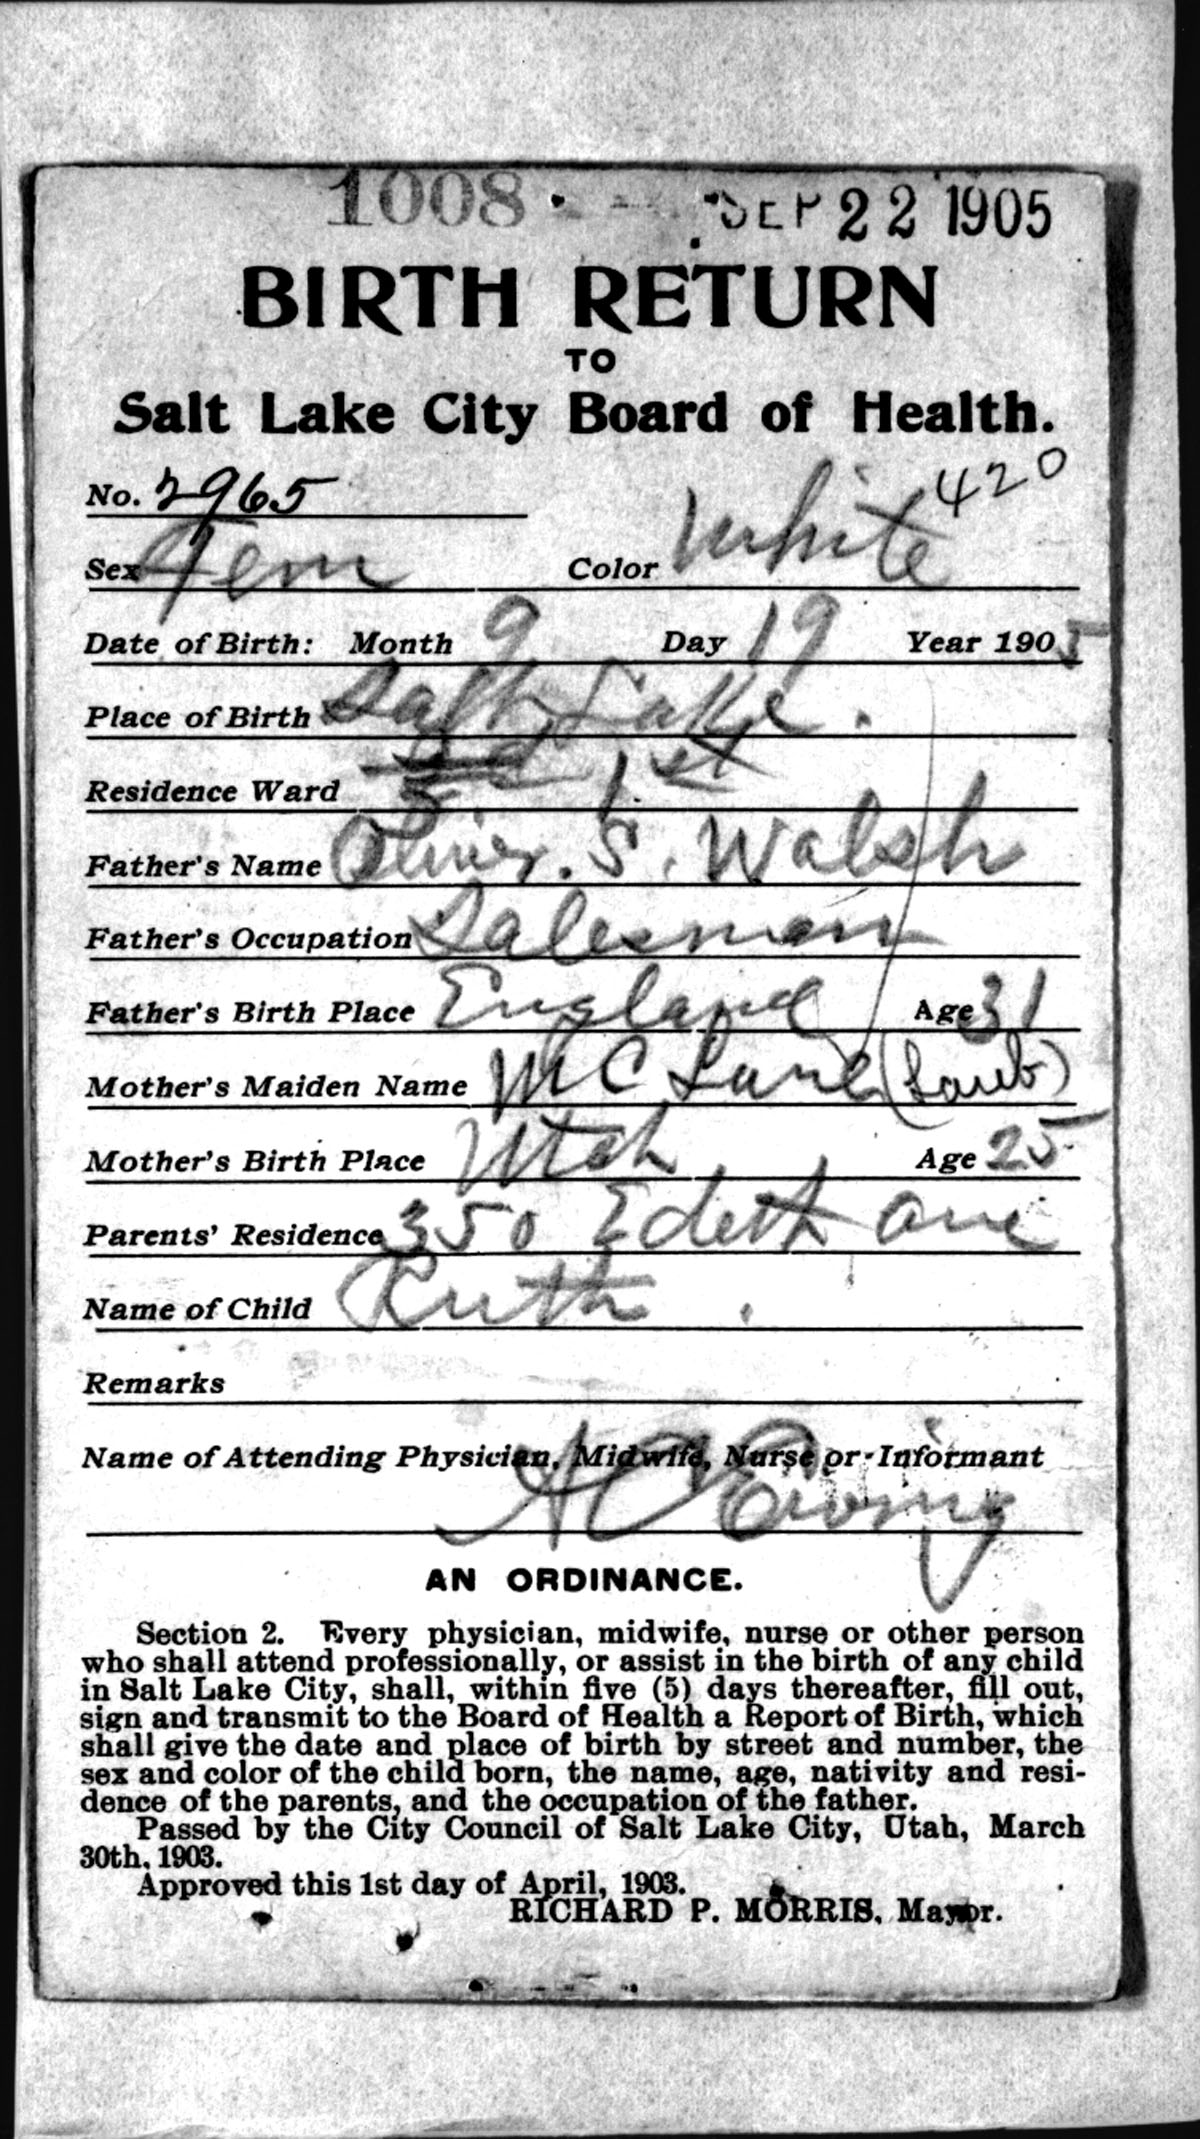 1008 SEP 22 1905
BIRTH RETURN
TO
Salt Lake City Board of Health.
No. 2965 420
Sex Fem Color White
Date of Birth: Month 9 Day 19 Year 1905
Place of Birth Salt Lake.
Residence Ward 1st
Father's Name Oliver. S. Walsh
Father's Occupation Salesman
Father's Birth Place England Age 31
Mother's Maiden Name McLane (Laub)
Mother's Birth Place Utah Age 25
Parents' Residence 350 Edeth ave
Name of Child Ruth.
Remarks
Name of Attending Physician, Midwife, Nurse or Informant
A C Ewing
AN ORDINANCE.
Section 2. Every physician, midwife, nurse or other person
who shall attend professionally, or assist in the birth of any child
in Salt Lake City, shall, within five (5) days thereafter, fill out,
sign and transmit to the Board of Health a Report of Birth, which
shall give the date and place of birth by street and number, the
sex and color of the child born, the name, age, nativity and resi-
dence of the parents, and the occupation of the father.
Passed by the City Council of Salt Lake City, Utah, March
30th, 1903.
Approved this 1st day of April, 1903.
RICHARD P. MORRIS, Mayor.